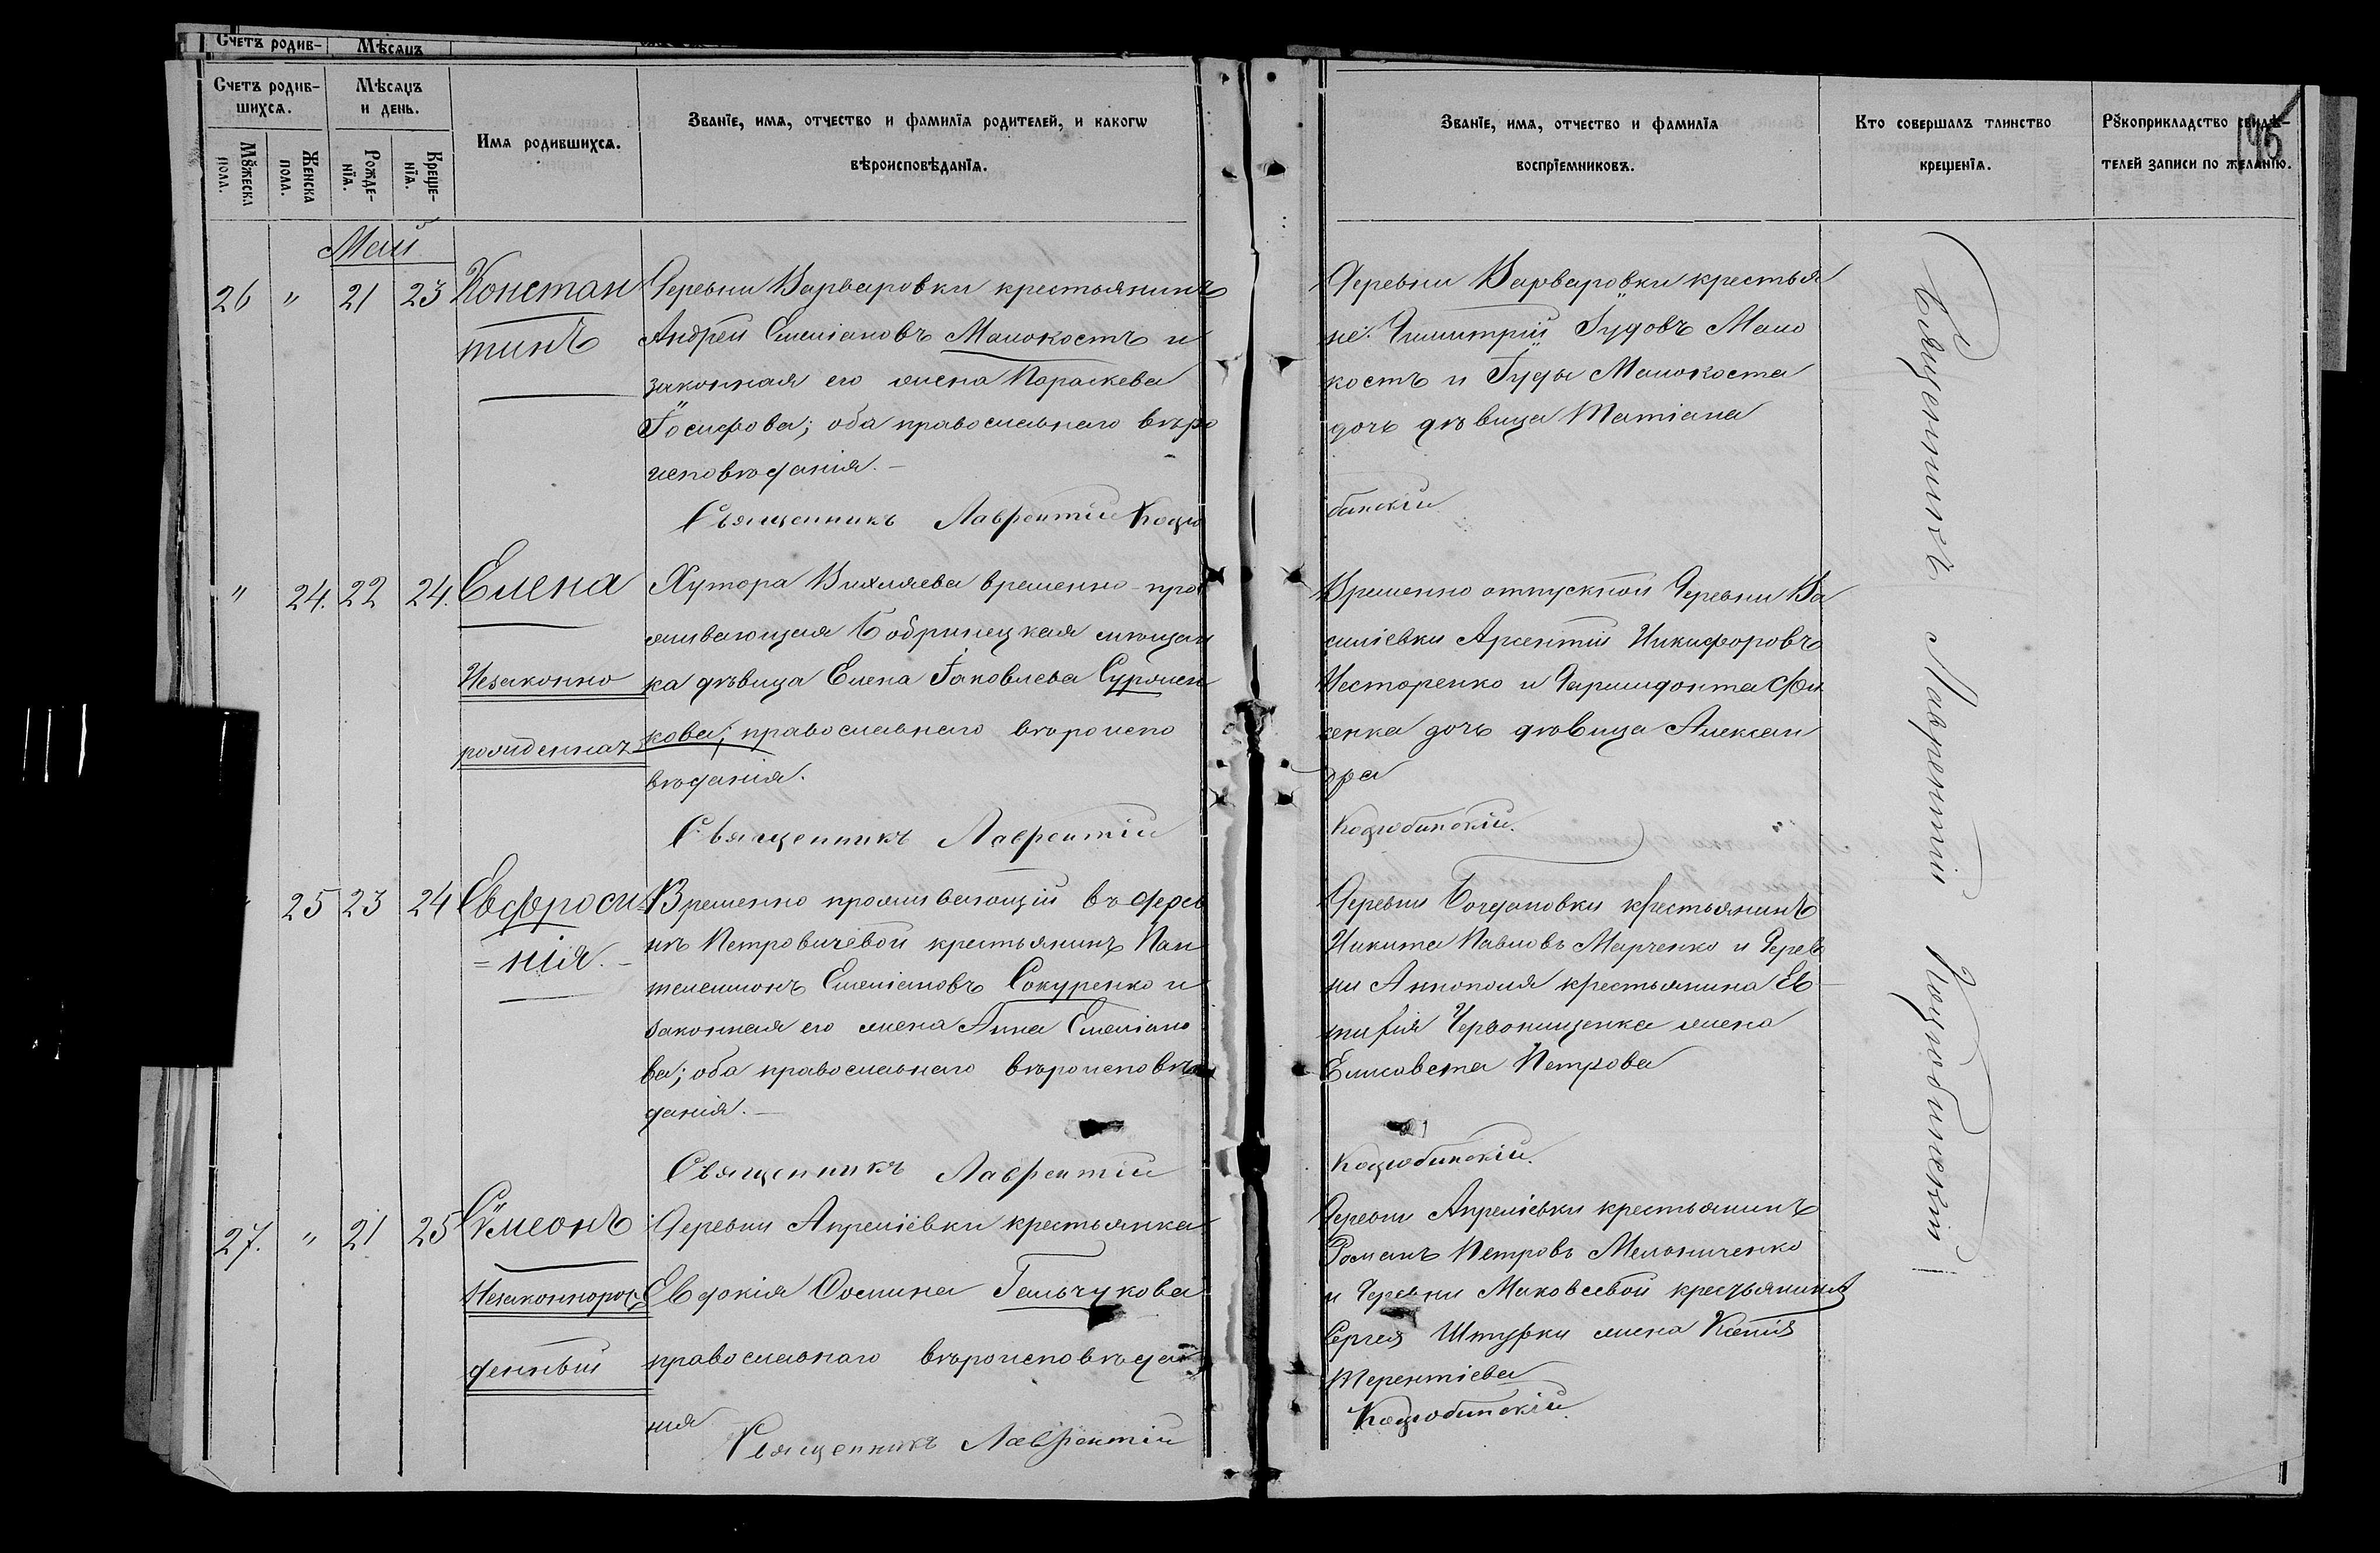 Счетъ родив- Мѣсяцъ
Счетъ родив-
шихся.
Мѣсяцъ
и день.
Мꙋжеска
пола.
Женска
пола.
Рожде-
нїя.
Креще-
нїя.
Имя родившихся.
Званїе, имя, отчество и фамилїя родителей, и какогѡ
вѣроисповѣданїя.
Званїе, имя, отчество и фамилїя
воспрїемниковъ.
Кто совершалъ таинство
крещенїя.
Рꙋкоприкладство свидѣ-
телей записи по желанїю.
Май
26 " 21 23 Констан
тинъ
Деревни Варваровки крестьянинъ
Андрей Емеліановъ Малокостъ и
законная его жена Параскева
Іосифова; оба православнаго вѣро
исповѣданія.-
Священникъ Лаврентій Коцю
Деревни Варваровки крестья
не: Димитрій Іудовъ Мало
костъ и Іуды Малокоста
дочь дѣвица Татіана
бинскій
" 24. 22 24. Елена
Незаконно
рожденная
Хутора Вихляева временно про
живающая Бобринецкая мѣщан
ка дѣвица Елена Іаковлева Сурмен
кова; православнаго вѣроиспо
вѣданія.
Священникъ Лаврентій
Временно отпускной Деревни Ва
силіевки Арсентій Никифоровъ
Несторенко и
дочь дѣвица Алексан
дра
Коцюбинскій.
25 23 24 Евфроси
=нія.-
Временно проживающій въ дерев
нѣ Петровичевой крестьянинъ Пан
телеимонъ Емеліановъ Сокуренко и
законная его жена Анна Емеліано
ва; оба православнаго вѣроисповѣ
данія.-
Священникъ Лаврентій
Деревни Богдановки крестьянинъ
Никита Павловъ Марченко и Дерев
ни Аннополя крестьянина Ев
жена
Елисавета Петрова
Коцюбинскій.
27. " 21 25 Сѵмеонъ
Незаконнорож
денный
Деревни Апреліевки крестьянка
Евдокія Фомина Гальчукова
православнаго вѣроисповѣда
нія
Священникъ Лаврентій
Деревни Апреліевки крестьянинъ
Романъ Петровъ Мельниченко
и Деревни Маковеевой крестьянина
Сергея Штурки жена Ксенія
Терентіева
Коцюбинскій.
Священникъ Лаврентій Коцюбинскій